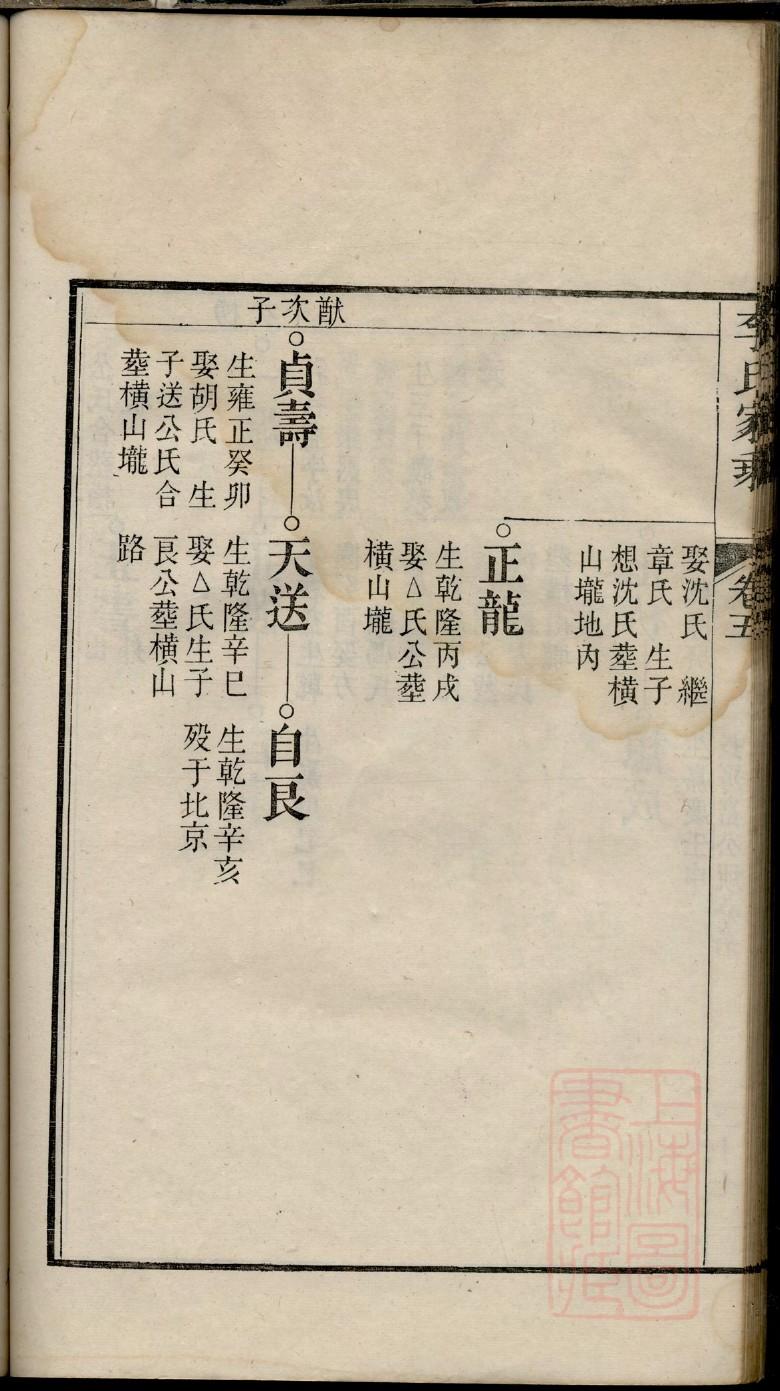 李氏家乘
卷五
娶沈氏　繼
章氏　生子
想沈氏塟橫
山壠地內
正龍
生乾隆丙戌
娶△氏公塟
橫山壠
猷次子
貞壽
生雍正癸卯
娶胡氏　生
子送公氏合
塟橫山壠
天送
生乾隆辛巳
娶△氏生子
艮公塟橫山
路
自艮
生乾隆辛亥
歿于北京
上海圖
書館藏